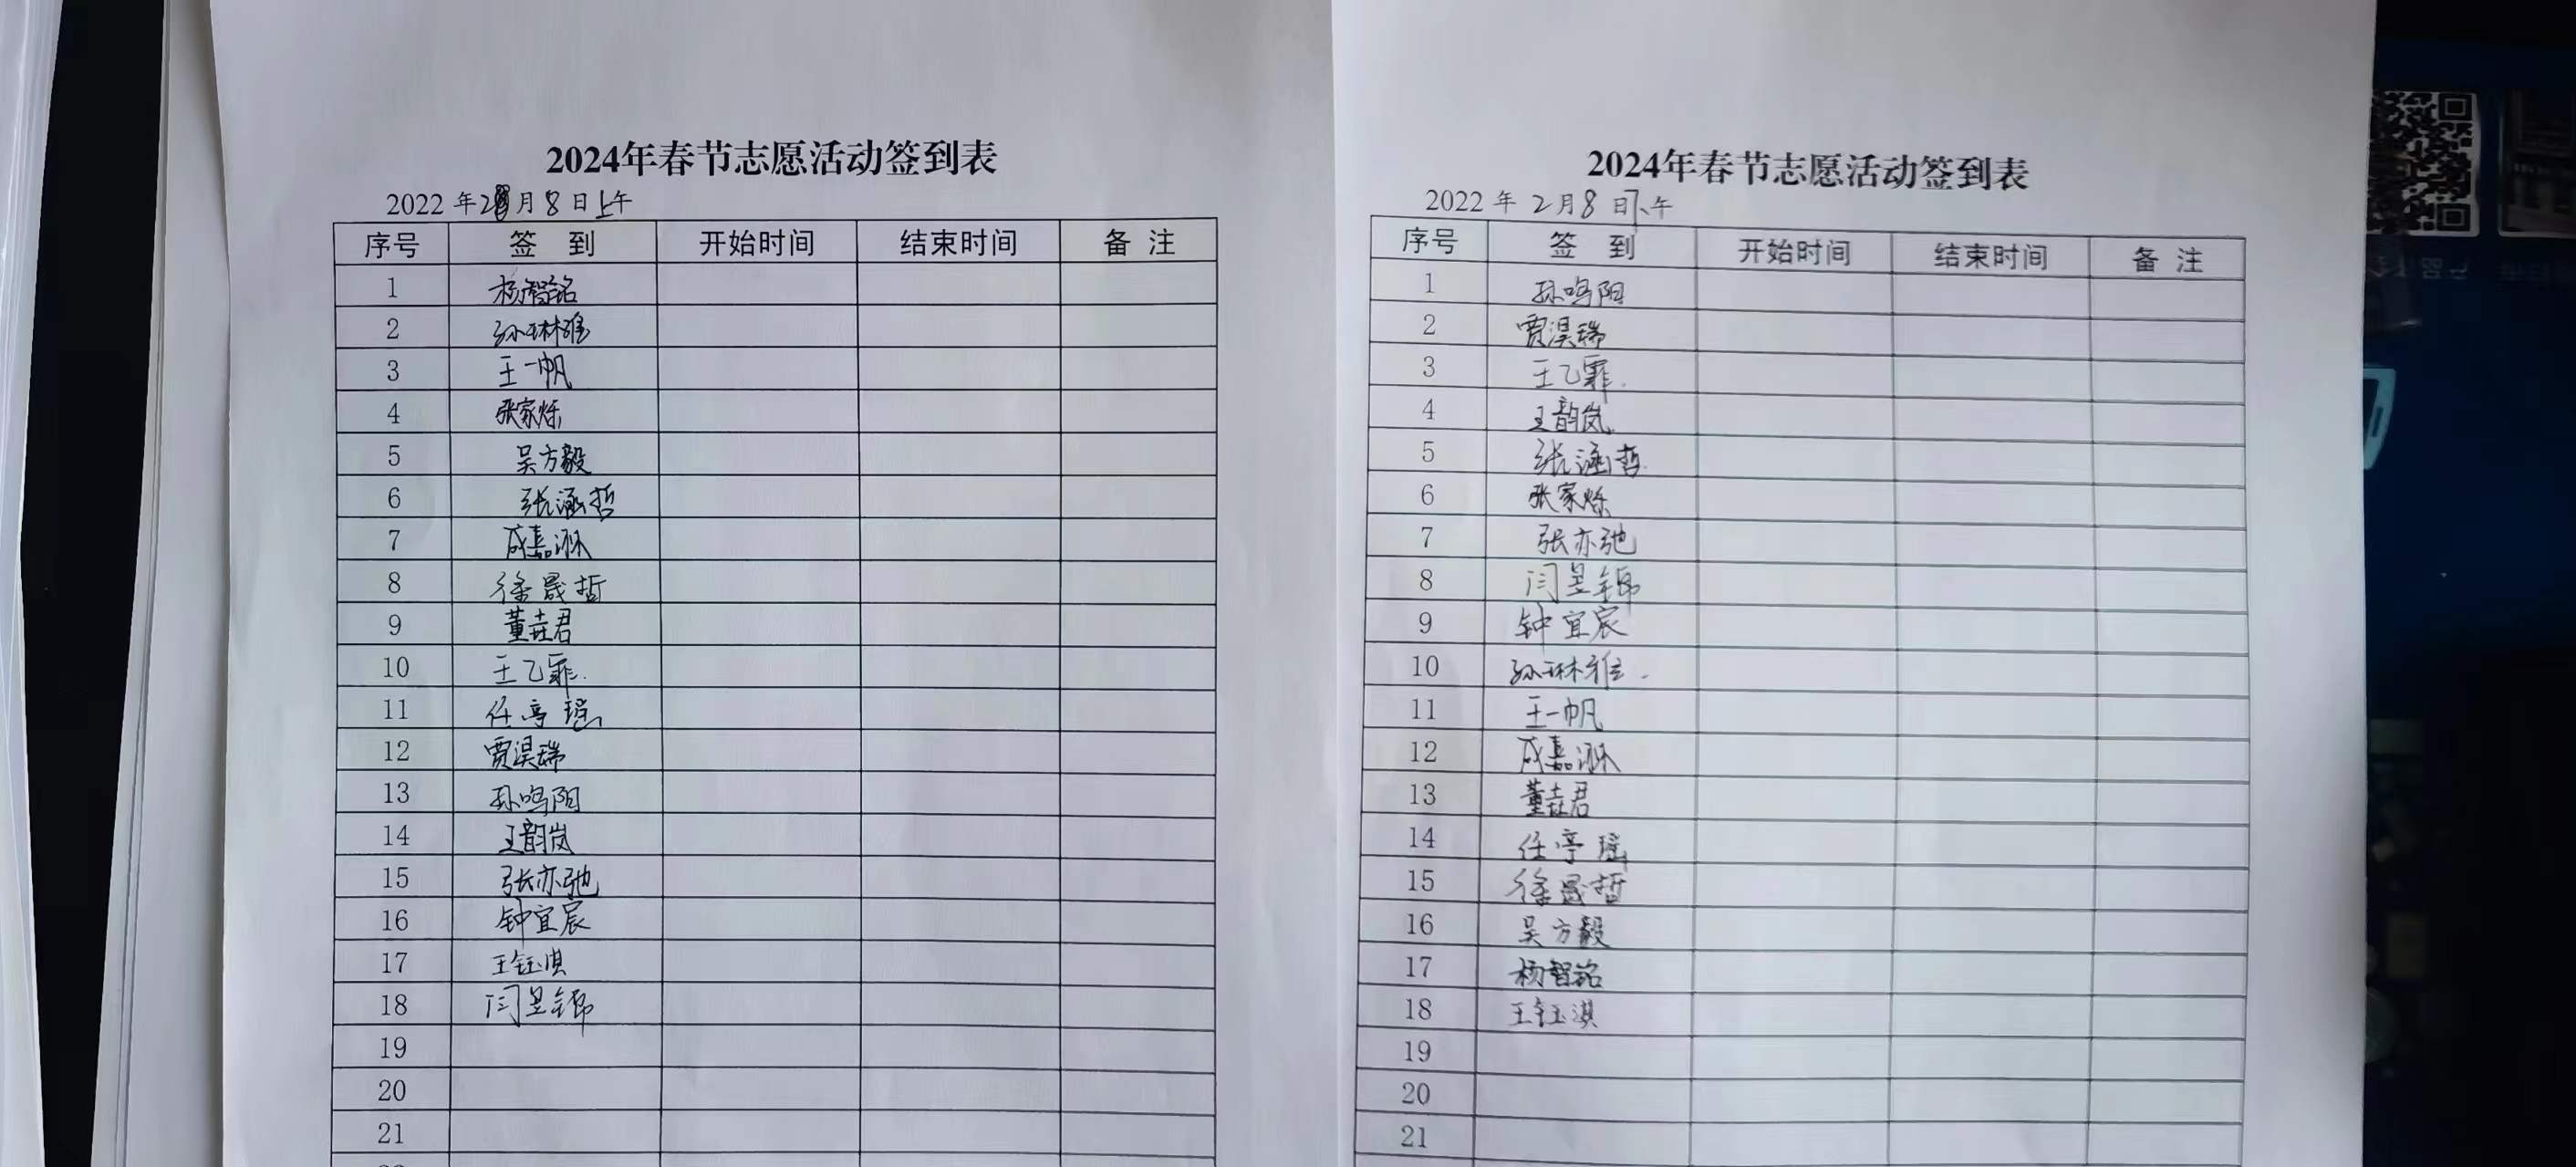 2024年春节志愿活动签到表
2022 年 2月 8 日上午
序号 签 到 开始时间 结束时间 备 注
1 杨智铭
2 孙琳雅
3 王一帆
4 张家烁
5 吴方毅
6 张涵哲
7 成嘉淋
8 徐晟哲
9 董垚君
10 王乙霏
11 任亭瑶
12 贾淏瑞
13 孙鸣阳
14 王韵岚
15 张亦弛
16 钟宜宸
17 王钰淇
18 闫昱
19
20
21
2024年春节志愿活动签到表
2022 年 2月 8 日下午
序号 签 到 开始时间 结束时间 备 注
1 孙鸣阳
2 贾淏瑞
3 王乙霏
4 王韵岚
5 张涵哲
6 张家烁
7 张亦弛
8 闫昱
9 钟宜宸
10 孙琳雅
11 王一帆
12 成嘉淋
13 董垚君
14 任亭瑶
15 徐晟哲
16 吴方毅
17 杨智铭
18 王钰淇
19
20
21